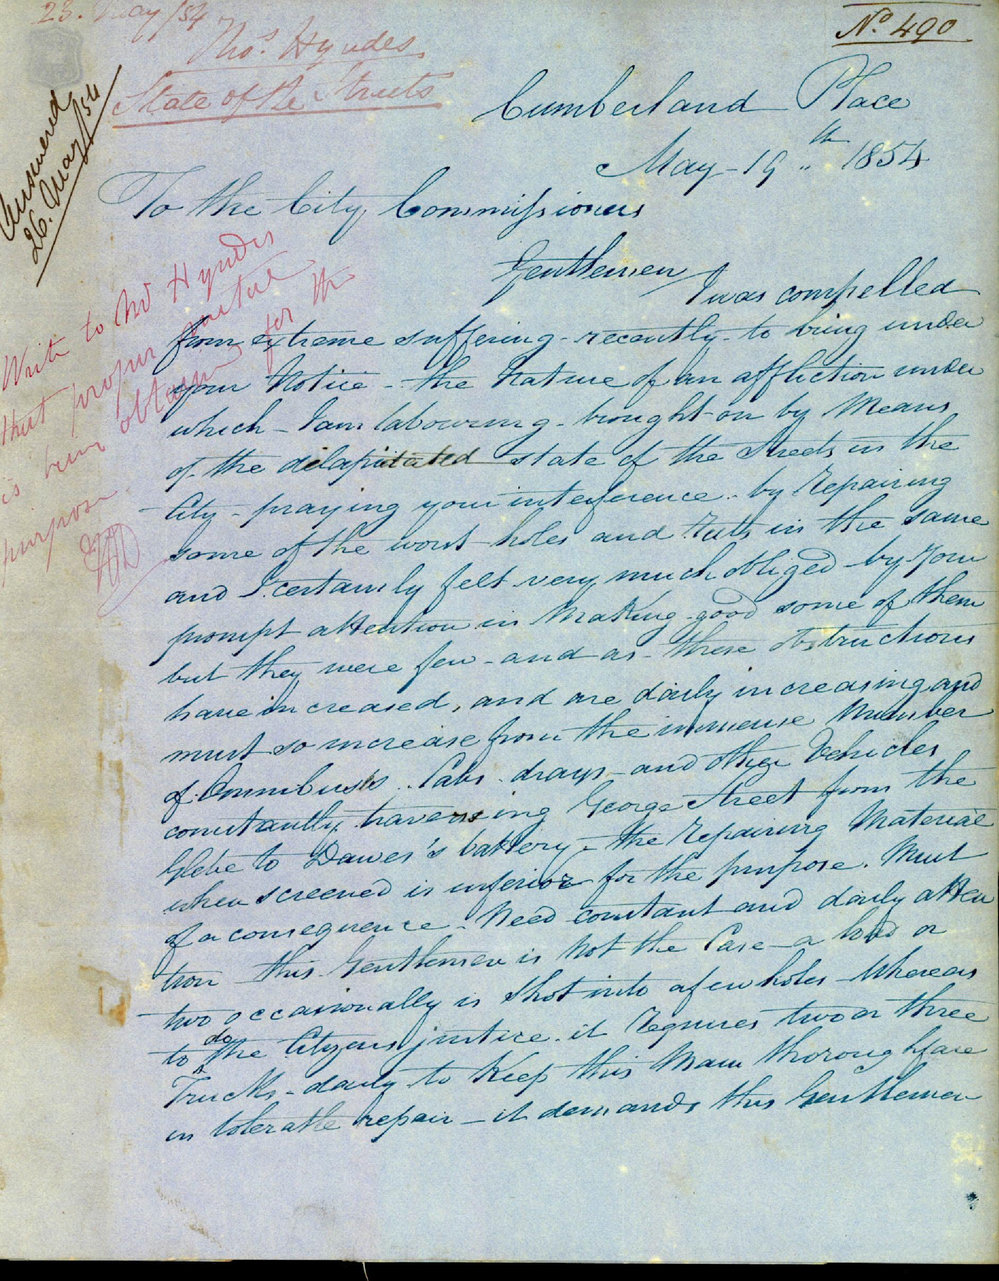 23. May /54
Thos. Hyndes
State of the Streets
No. 490
Answered
26. May /54
Cumberland Place
May 19th 1854
To the City Commissioners
Gentlemen I was compelled
from extreme suffering - recently - to bring under
your Notice - the Nature of an affliction under
which - I am labouring - brought on by Means
of the dilapitated state of the Streets in the
City - praying your interference - by repairing
some of the worst holes and rutts in the same
and I certainly felt very much obliged by your
prompt attention in Making good some of them
but they were few - and as these obstructions
have increased, and are daily increasing and
must so increase from the immense Number
of Omnibusts. Cabs. drays and other Vehicles
constantly traversing George Street from the
Glebe to Dawes's battery - the repairing Material
when screened is inferior for the purpose. Must
of a consequence - Need constant and daily atten
tion this Gentlemen is Not the Case - a load or
two occasionally is shot into a few holes Whereas
to do the Citizens justice. it requires two or three
Trucks - daily to Keep this Main thoroughfare
in tolerable repair - it demands this Gentlemen
Write to Mr Hyndes
that proper metal
is being obtained for the
purpose